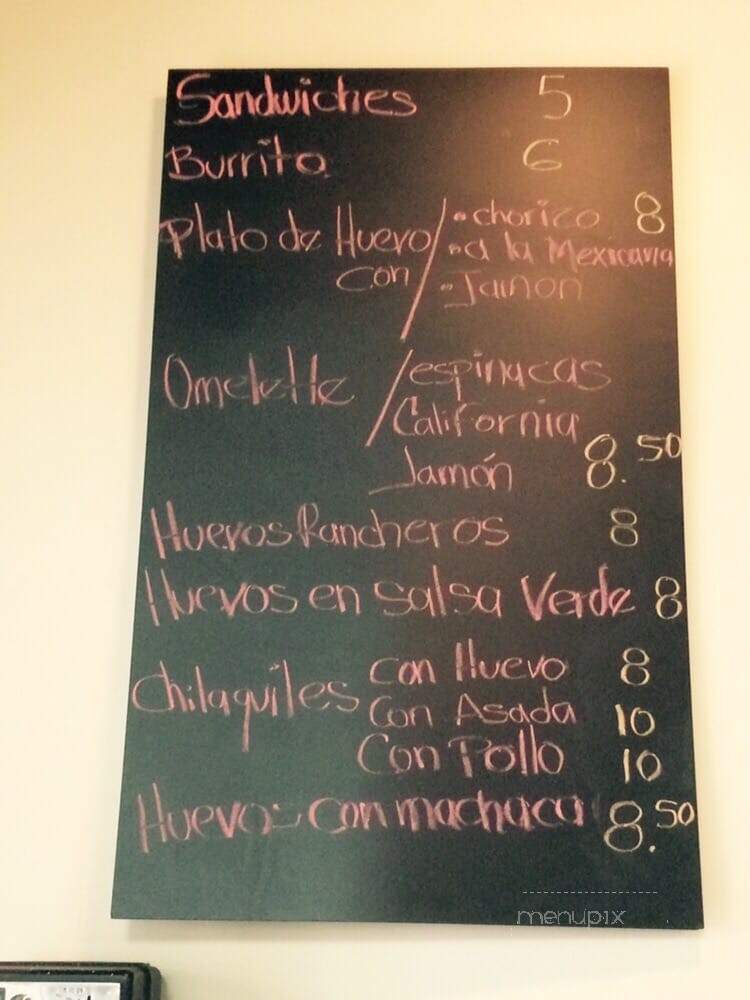 Sandwiches 5
Burrito 6
Plato de Huevo / • chorico 8
con • a la Mexicana
• Jamon
Omelette / espinacas
California
Jamón 8.50
Huevos Rancheros 8
Huevos en salsa Verde 8
Chilaquiles con Huevo 8
Con Asada 10
Con Pollo 10
Huevos con machaca 8.50
menupix